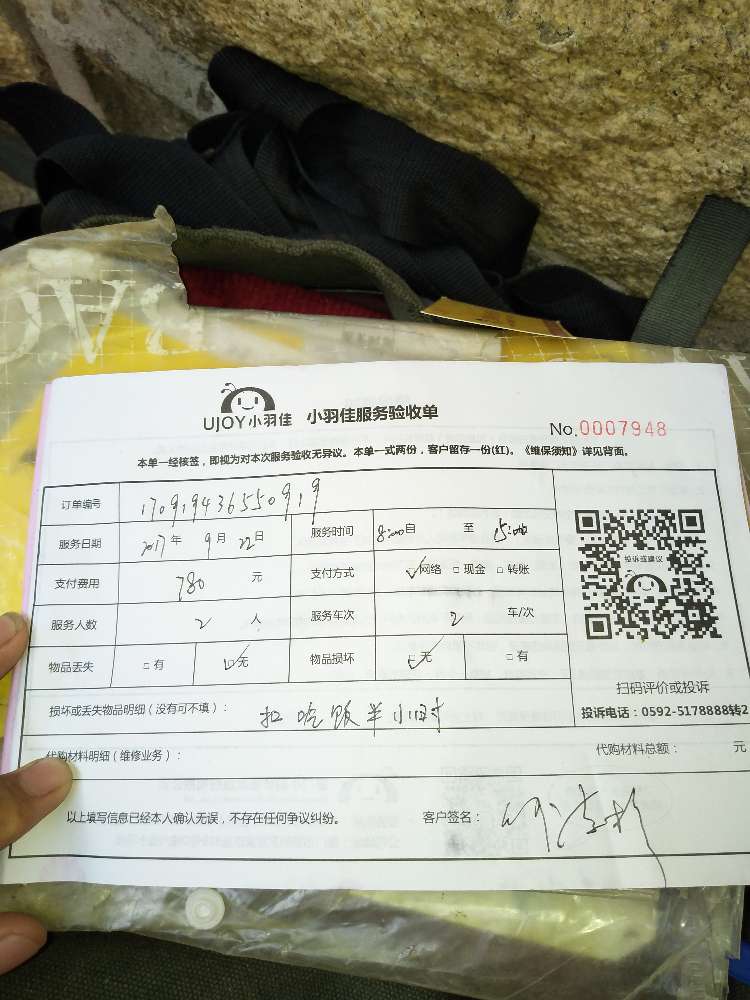 UJOY小羽佳 小羽佳服务验收单
No.0007948
本单一经核签，即视为对本次服务验收无异议。本单一式两份，客户留存一份(红)。《维保须知》详见背面。
订单编号 170919436550919
服务日期 2017年 9月 22日 服务时间 8:00自 至 15:00
支付费用 780 元 支付方式 网络 现金 转账
投诉或建议
服务人数 2 人 服务车次 2 车/次
物品丢失 有 无 物品损坏 无 有
扫码评价或投诉
损坏或丢失物品明细（没有可不填）： 扣吃饭半小时
投诉电话：0592-5178888转2
代购材料明细（维修业务）： 代购材料总额： 元
以上填写信息已经本人确认无误，不存在任何争议纠纷。 客户签名：